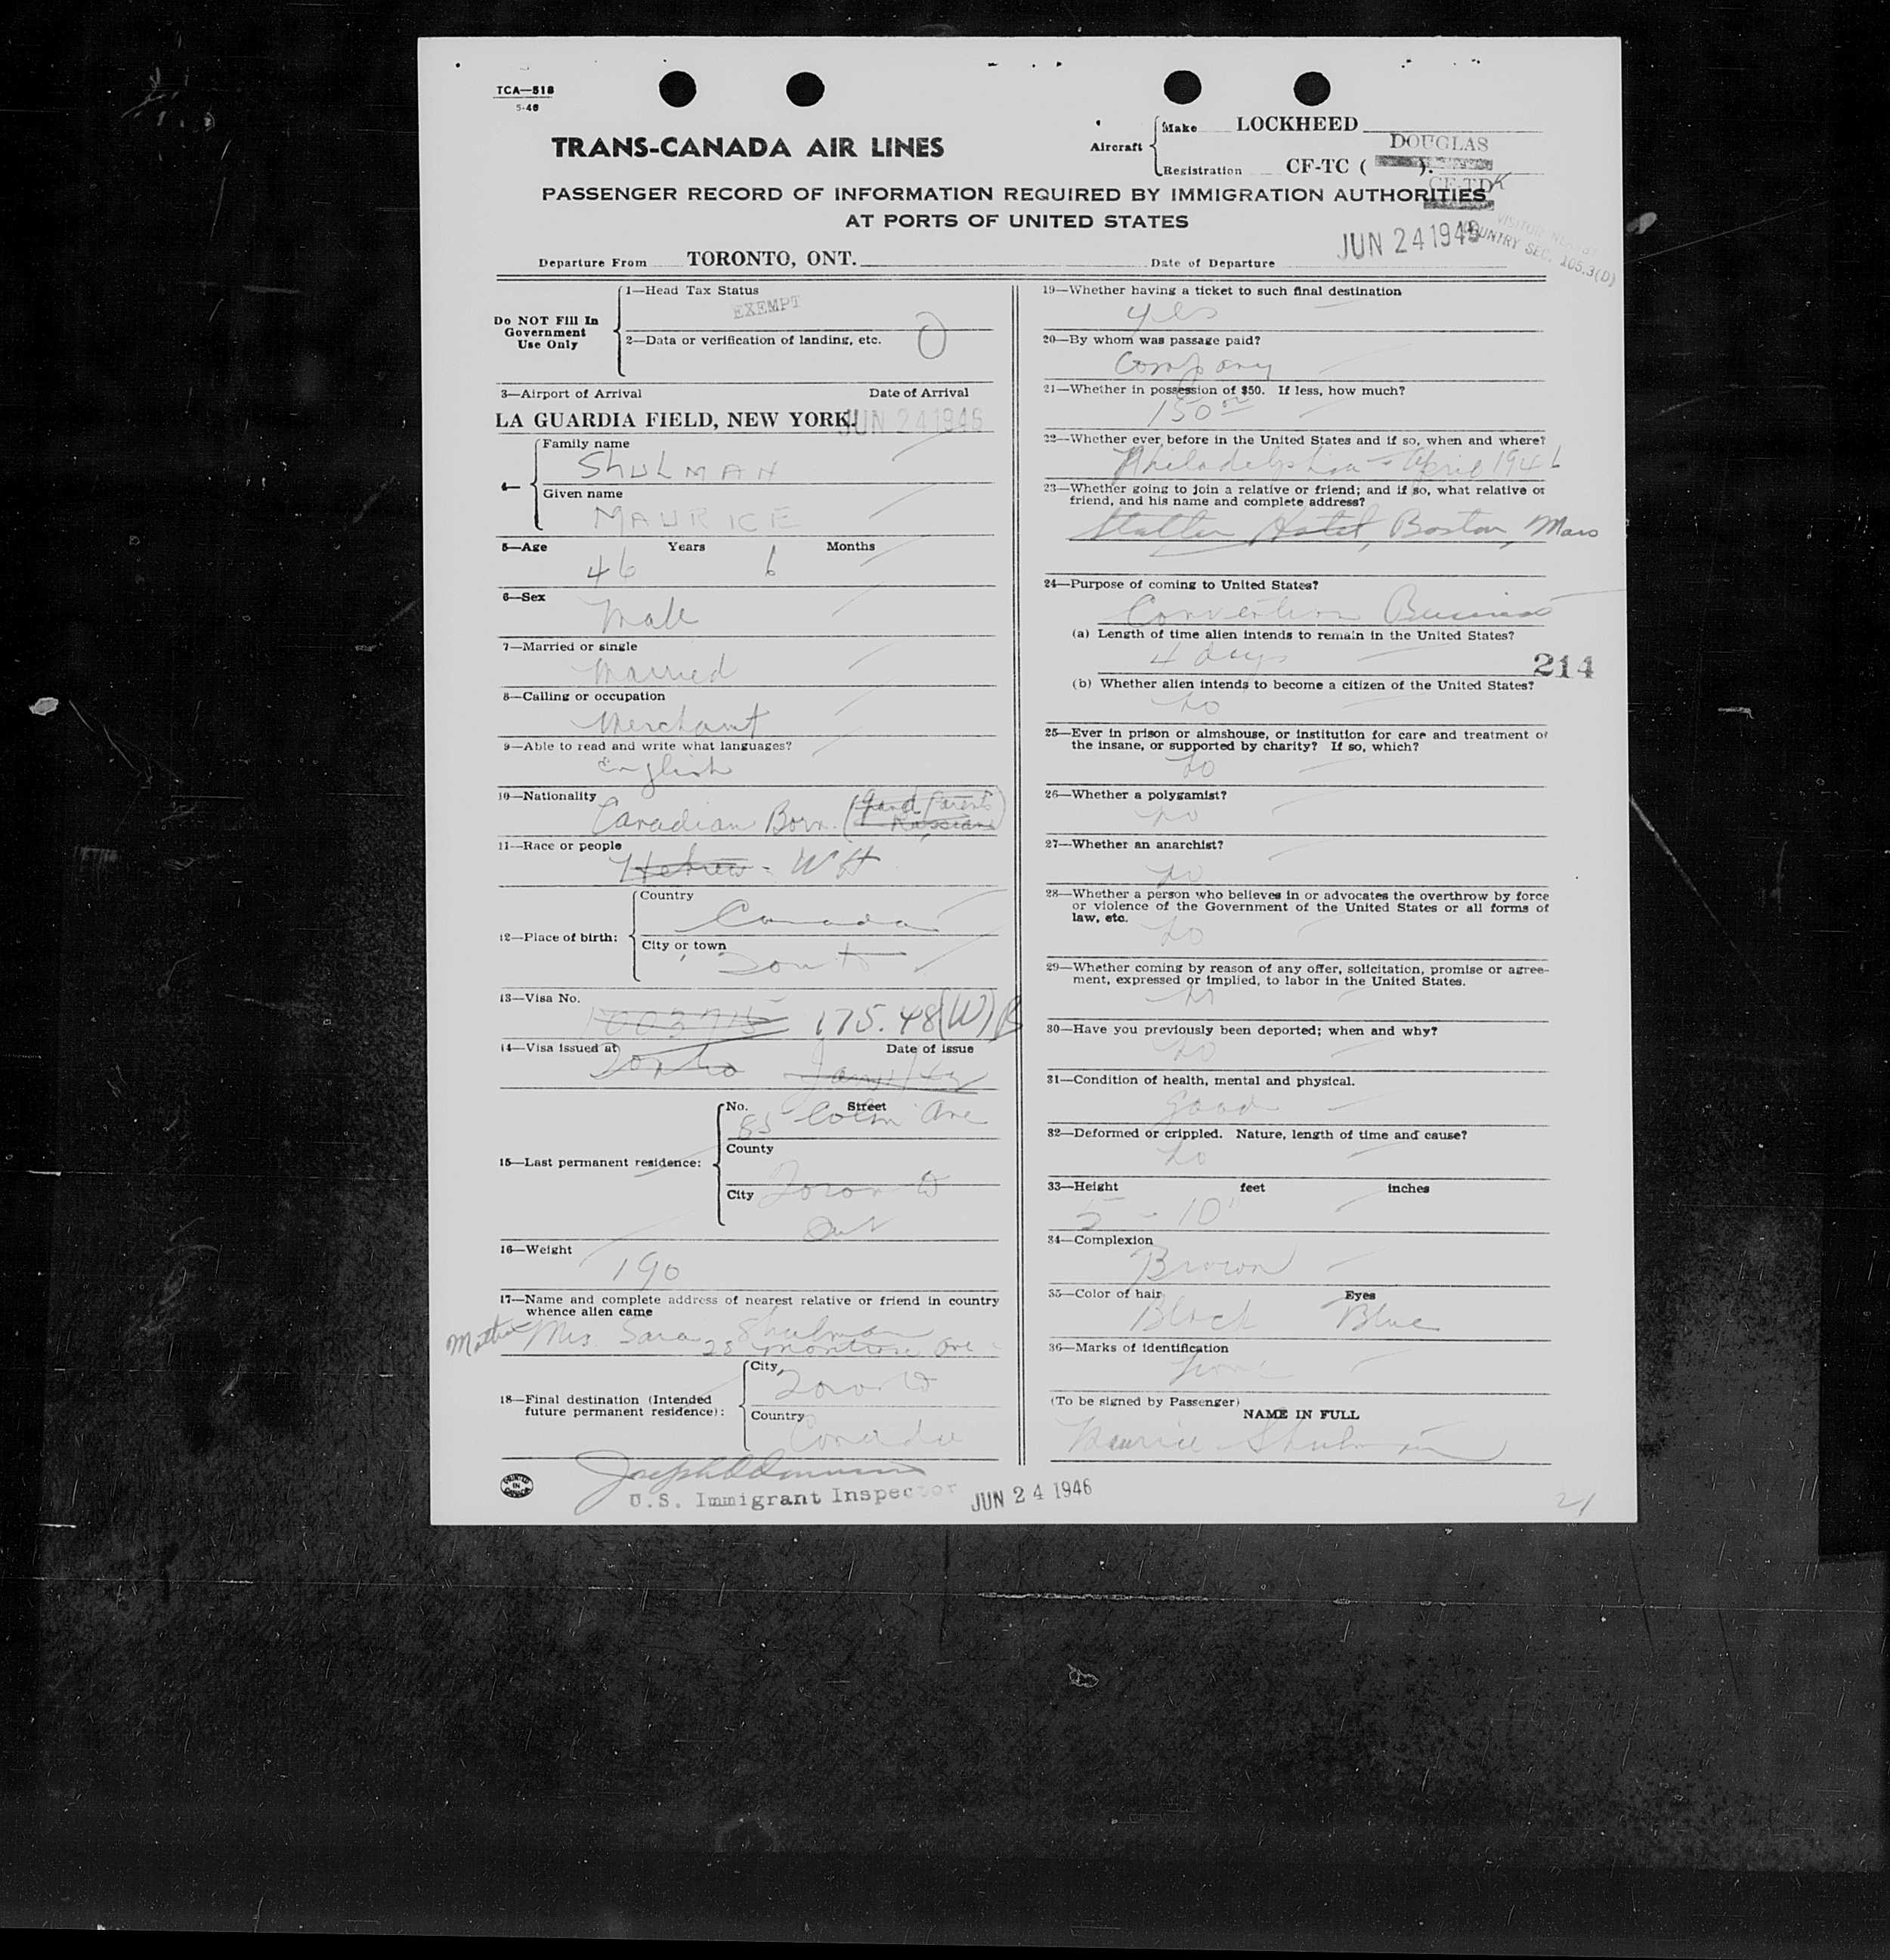 TCA—518
5-46
TRANS-CANADA AIR LINES
Aircraft
Make LOCKHEED
DOUGLAS
Registration CF-TC ( ).
CF-TDK
PASSENGER RECORD OF INFORMATION REQUIRED BY IMMIGRATION AUTHORITIES
AT PORTS OF UNITED STATES
COUNTRY SEC. 105.3(D)
Departure From TORONTO, ONT. Date of Departure JUN 24 1946
Do NOT Fill In
Government
Use Only
1—Head Tax Status
EXEMPT
2—Data or verification of landing, etc. 0
3—Airport of Arrival Date of Arrival
LA GUARDIA FIELD, NEW YORK. JUN 24 1946
4—
Family name
SHULMAN
Given name
MAURICE
5—Age Years Months
46 6
6—Sex
Male
7—Married or single
Married
8—Calling or occupation
Merchant
9—Able to read and write what languages?
English
10—Nationality
Canadian Born. (Grand Parents
Russians)
11—Race or people
Hebrew - WH
12—Place of birth:
Country
Canada
City or town
Toronto
13—Visa No.
175.48(W)B
14—Visa issued at Date of issue
Toronto
15—Last permanent residence:
No. Street
85 Colin Ave
County
City Toronto
Ont
16—Weight
190
17—Name and complete address of nearest relative or friend in country
whence alien came
Mother Mrs. Sara Shulman
28 Montrose Ave
18—Final destination (Intended
future permanent residence):
City
Toronto
Country
Canada
U.S. Immigrant Inspector JUN 24 1946
PRINTED
IN
CANADA
19—Whether having a ticket to such final destination
yes
20—By whom was passage paid?
Company
21—Whether in possession of $50. If less, how much?
150
22—Whether ever before in the United States and if so, when and where?
Philadelphia - April 1946
23—Whether going to join a relative or friend; and if so, what relative or
friend, and his name and complete address?
Statler Hotel, Boston, Mass
24—Purpose of coming to United States?
Convention Business
(a) Length of time alien intends to remain in the United States?
4 days
214
(b) Whether alien intends to become a citizen of the United States?
no
25—Ever in prison or almshouse, or institution for care and treatment of
the insane, or supported by charity? If so, which?
no
26—Whether a polygamist?
no
27—Whether an anarchist?
no
28—Whether a person who believes in or advocates the overthrow by force
or violence of the Government of the United States or all forms of
law, etc.
no
29—Whether coming by reason of any offer, solicitation, promise or agree-
ment, expressed or implied, to labor in the United States.
no
30—Have you previously been deported; when and why?
no
31—Condition of health, mental and physical.
good
32—Deformed or crippled. Nature, length of time and cause?
no
33—Height feet inches
5 - 10"
34—Complexion
Brown
35—Color of hair Eyes
Black Blue
36—Marks of identification
none
(To be signed by Passenger)
NAME IN FULL
Maurice Shulman
21